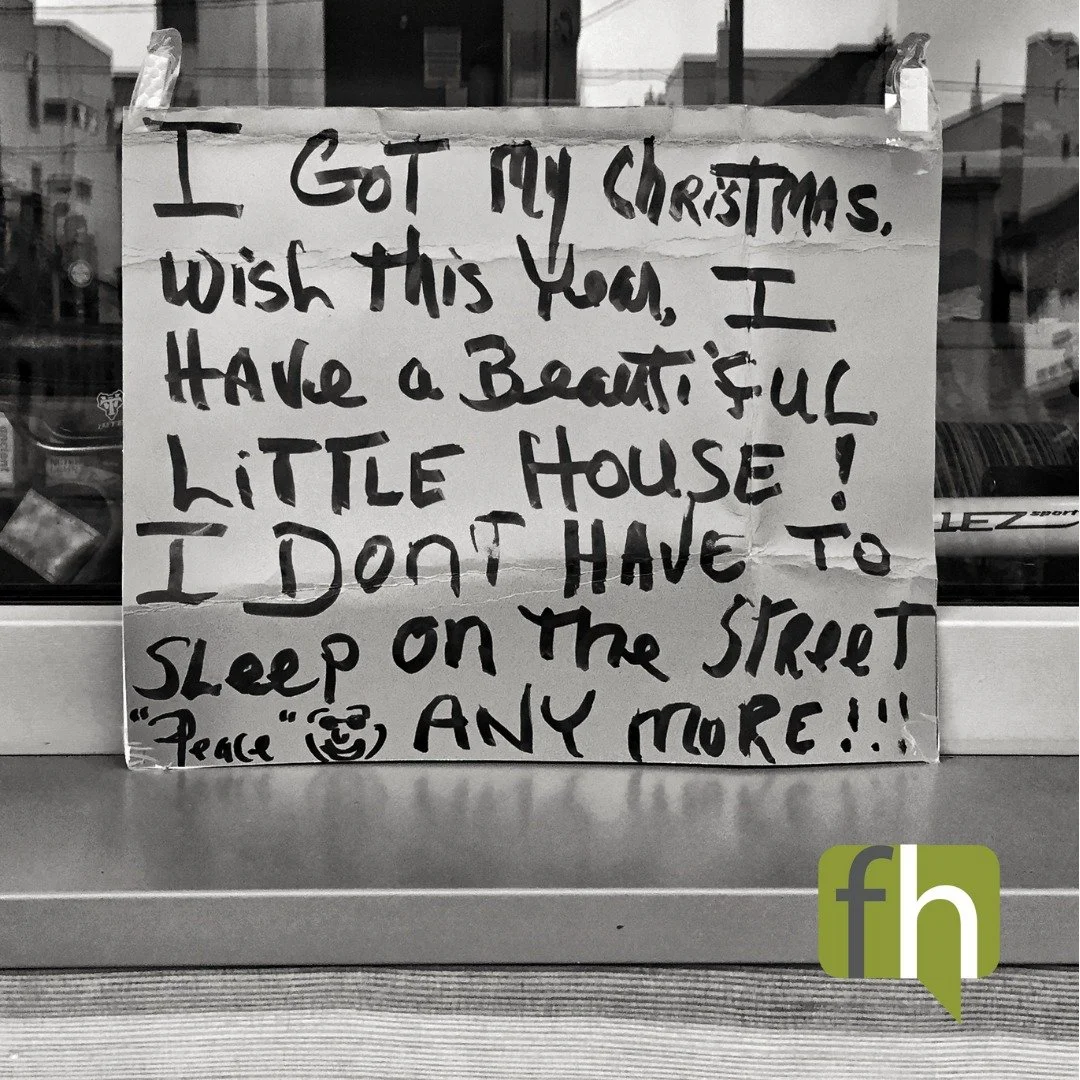 I GoT my ChRisTMAS.
wish this Year, I
HAVe a BeautifUL
LiTTLE HOUSE !
I Don'T HAVE TO
SLeep on The STReeT
"Peace" ANY moRE!!!
LEZ sport
fh